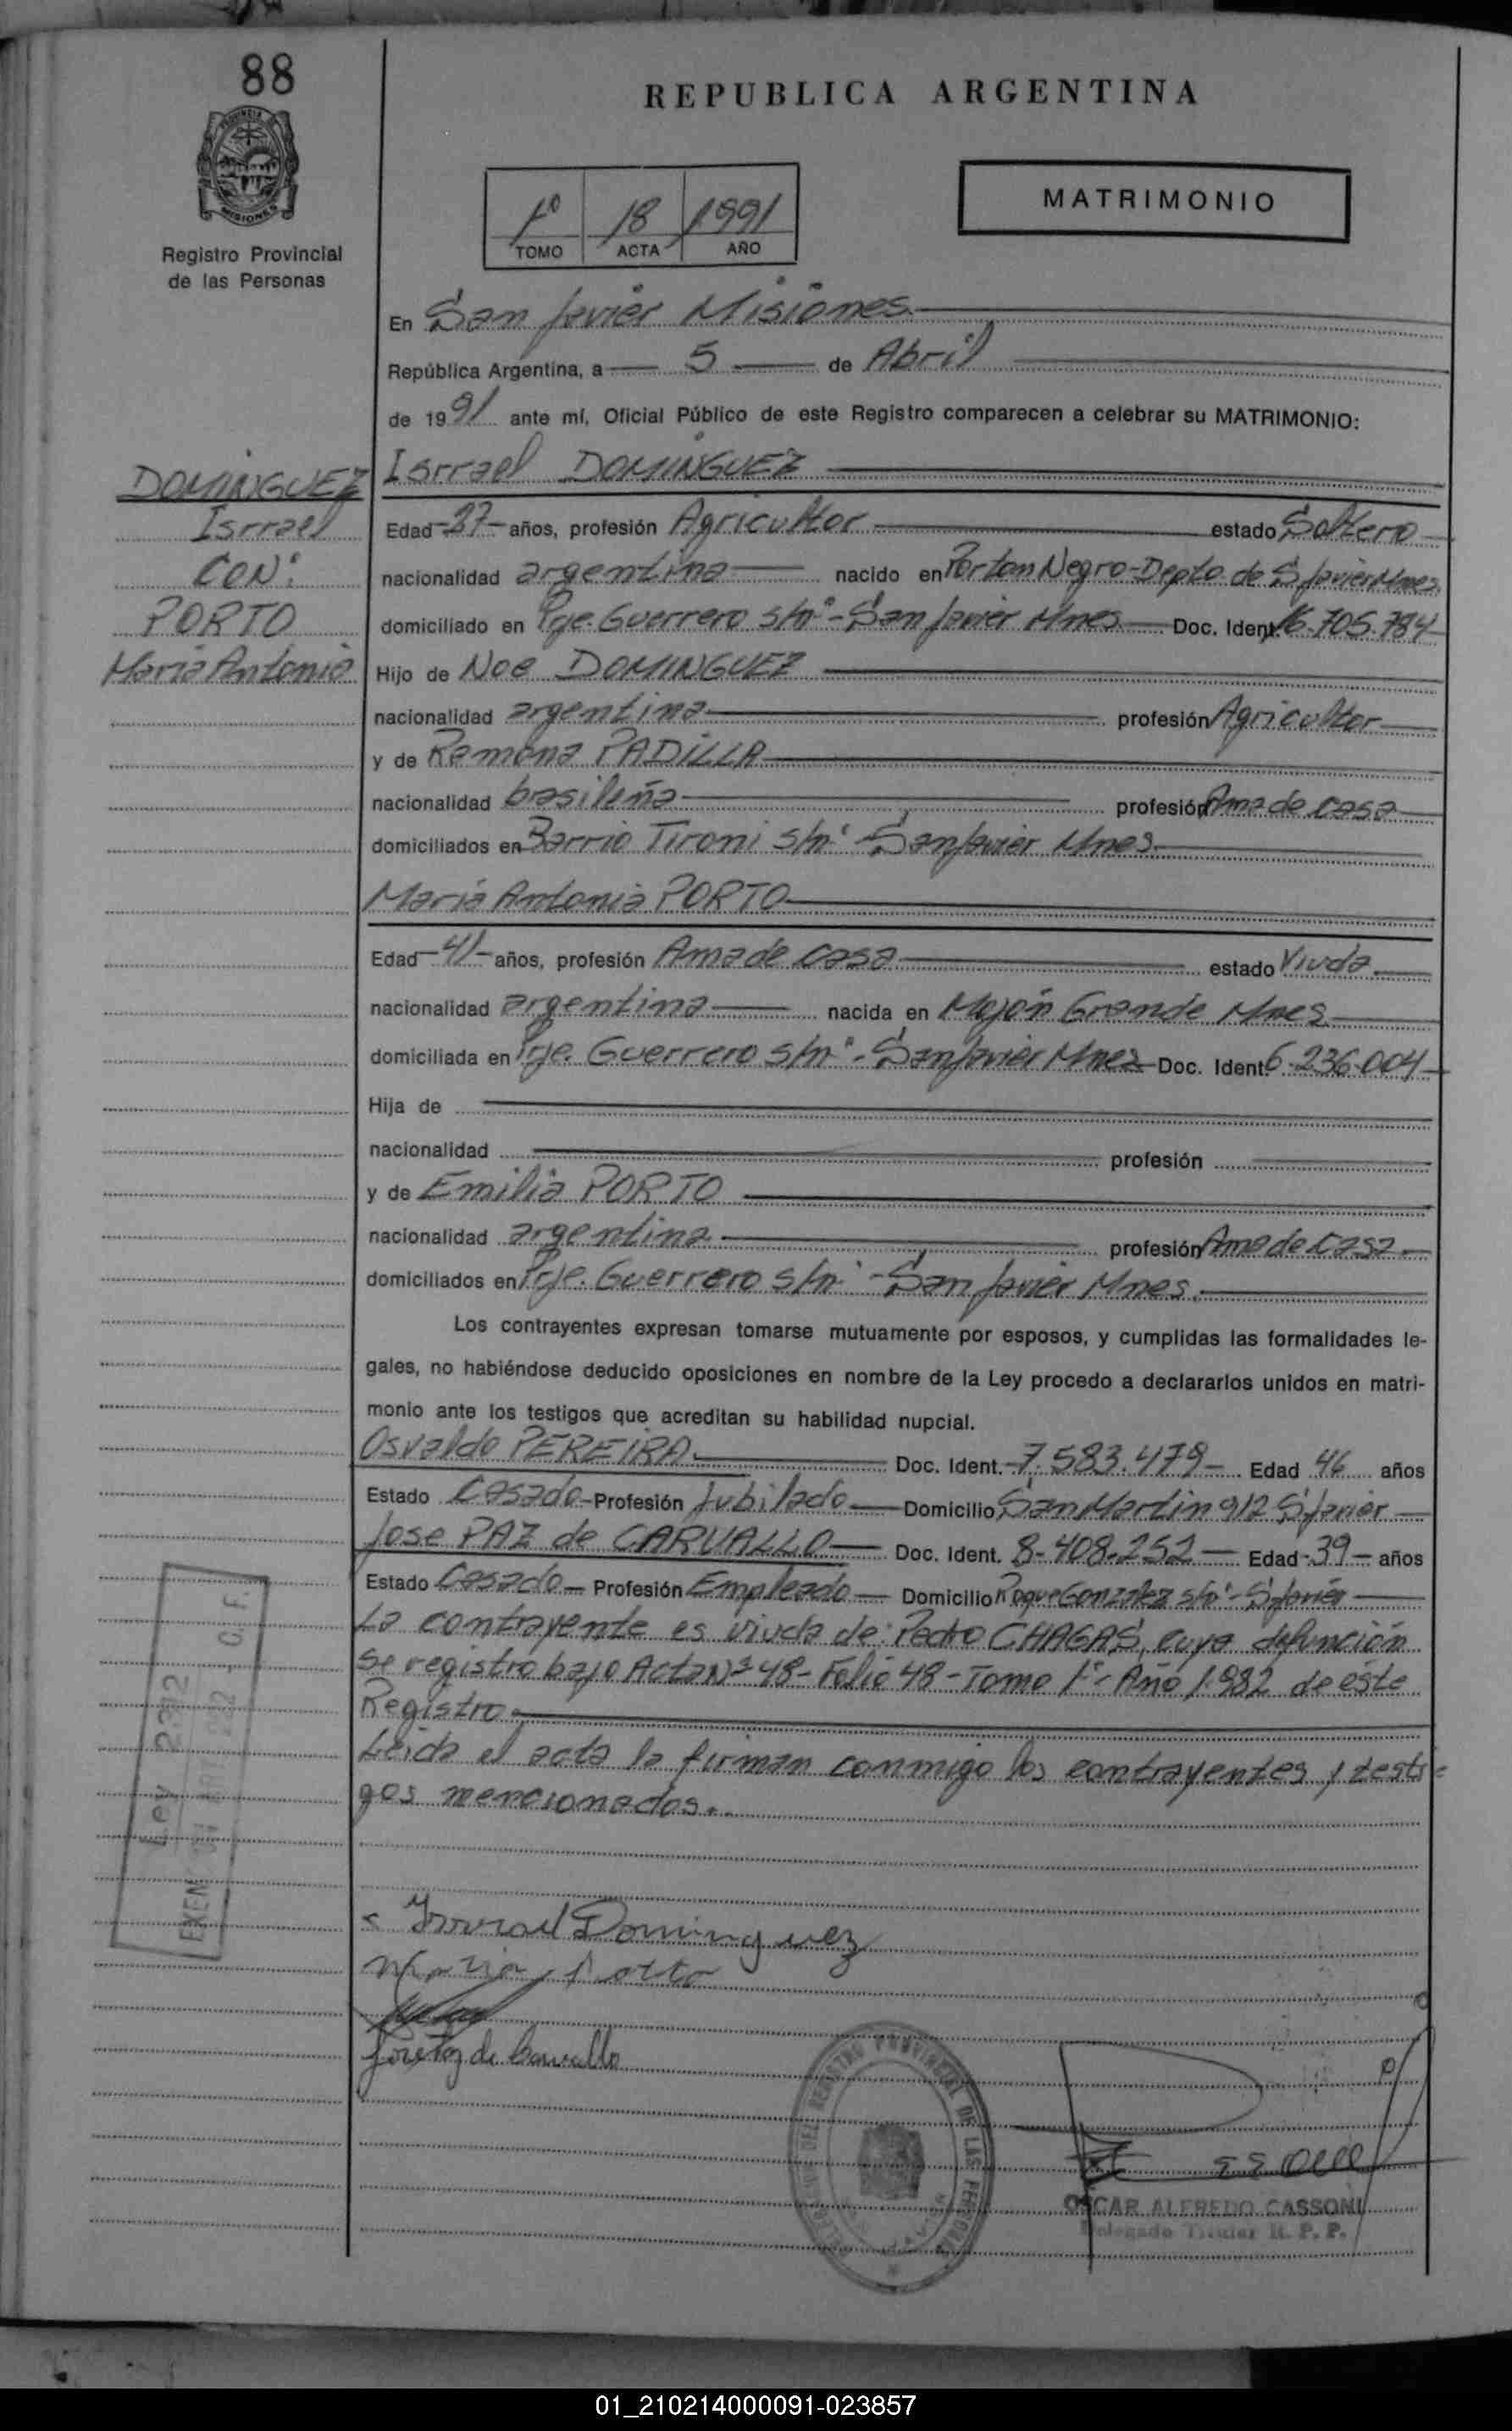 88
REPUBLICA ARGENTINA
PROVINCIA DE
MISIONES
Registro Provincial
de las Personas
1º 18 1991
TOMO ACTA AÑO
MATRIMONIO
En San Javier Misiones
República Argentina, a 5 de Abril
de 1991 ante mí, Oficial Público de este Registro comparecen a celebrar su MATRIMONIO:
DOMINGUEZ
Isrrael
CON:
PORTO
María Antonia
Isrrael DOMINGUEZ
Edad -27- años, profesión Agricultor estado Soltero
nacionalidad argentina nacido en Porton Negro-Depto de S Javier Mnes.
domiciliado en Pje. Guerrero s/nº-San Javier Mnes Doc. Ident. 16.705.784
Hijo de Noe DOMINGUEZ
nacionalidad argentina profesión Agricultor
y de Ramona PADILLA
nacionalidad brasileña profesión Ama de casa
domiciliados en Barrio Tironi s/nº-San Javier Mnes
María Antonia PORTO
Edad -41- años, profesión Ama de casa estado Viuda
nacionalidad argentina nacida en Mojón Grande Mnes
domiciliada en Pje. Guerrero s/nº-San Javier Mnes Doc. Ident. 6.236.004
Hija de
nacionalidad profesión
y de Emilia PORTO
nacionalidad argentina profesión Ama de casa
domiciliados en Pje. Guerrero s/nº-San Javier Mnes.
Los contrayentes expresan tomarse mutuamente por esposos, y cumplidas las formalidades le-
gales, no habiéndose deducido oposiciones en nombre de la Ley procedo a declararlos unidos en matri-
monio ante los testigos que acreditan su habilidad nupcial.
Osvaldo PEREIRA Doc. Ident. 7.583.479- Edad 46 años
Estado Casado- Profesión Jubilado Domicilio San Martin 912 S Javier
Jose PAZ de CARVALLO Doc. Ident. 8-408.252 Edad -39- años
Estado Casado- Profesión Empleado- Domicilio Roque Gonzalez s/nº-S Javier
La contrayente es viuda de: Pedro CHAGAS, cuya defunción
se registro bajo Acta Nº 48-Folio 48-Tomo 1º-Año 1.982 de éste
Registro.
Leida el acta la firman conmigo los contrayentes y testi=
gos mencionados..
Ley 2.312
Isrrael Dominguez
Maria Porto
Jose Paz de Carvallo
REGISTRO PROVINCIAL DE LAS PERSONAS
OSCAR ALFREDO CASSONI
Delegado Titular R. P. P.
01_210214000091-023857